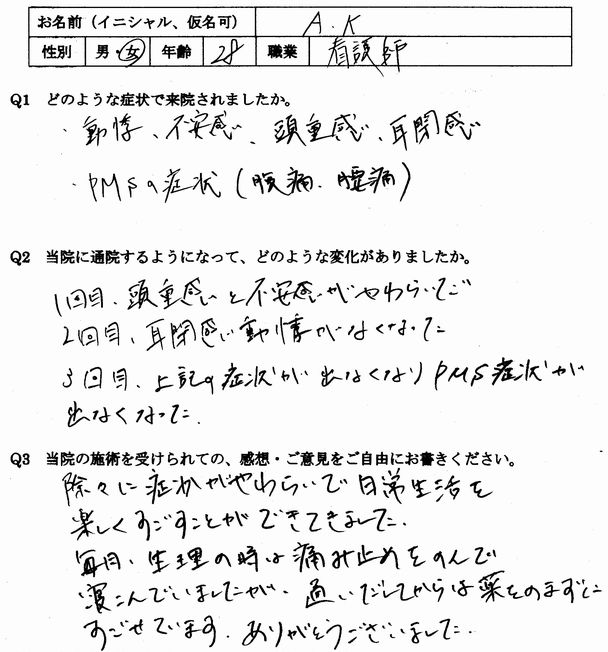 お名前（イニシャル、仮名可） A.K
性別 男・女 年齢 28 職業 看護師
Q1 どのような症状で来院されましたか。
・動悸、不安感、頭重感、耳閉感
・PMSの症状（腹痛、腰痛）
Q2 当院に通院するようになって、どのような変化がありましたか。
1回目、頭重感と不安感がやわらいだ
2回目、耳閉感、動悸がなくなった
3回目、上記の症状が出なくなりPMS症状が
出なくなった.
Q3 当院の施術を受けられての、感想・ご意見をご自由にお書きください。
除々に症状がやわらいで日常生活を
楽しくすごすことができてきました.
毎月、生理の時は痛み止めをのんで
寝こんでいましたが、通いだしてからは薬をのまずに
すごせています. ありがとうございました.